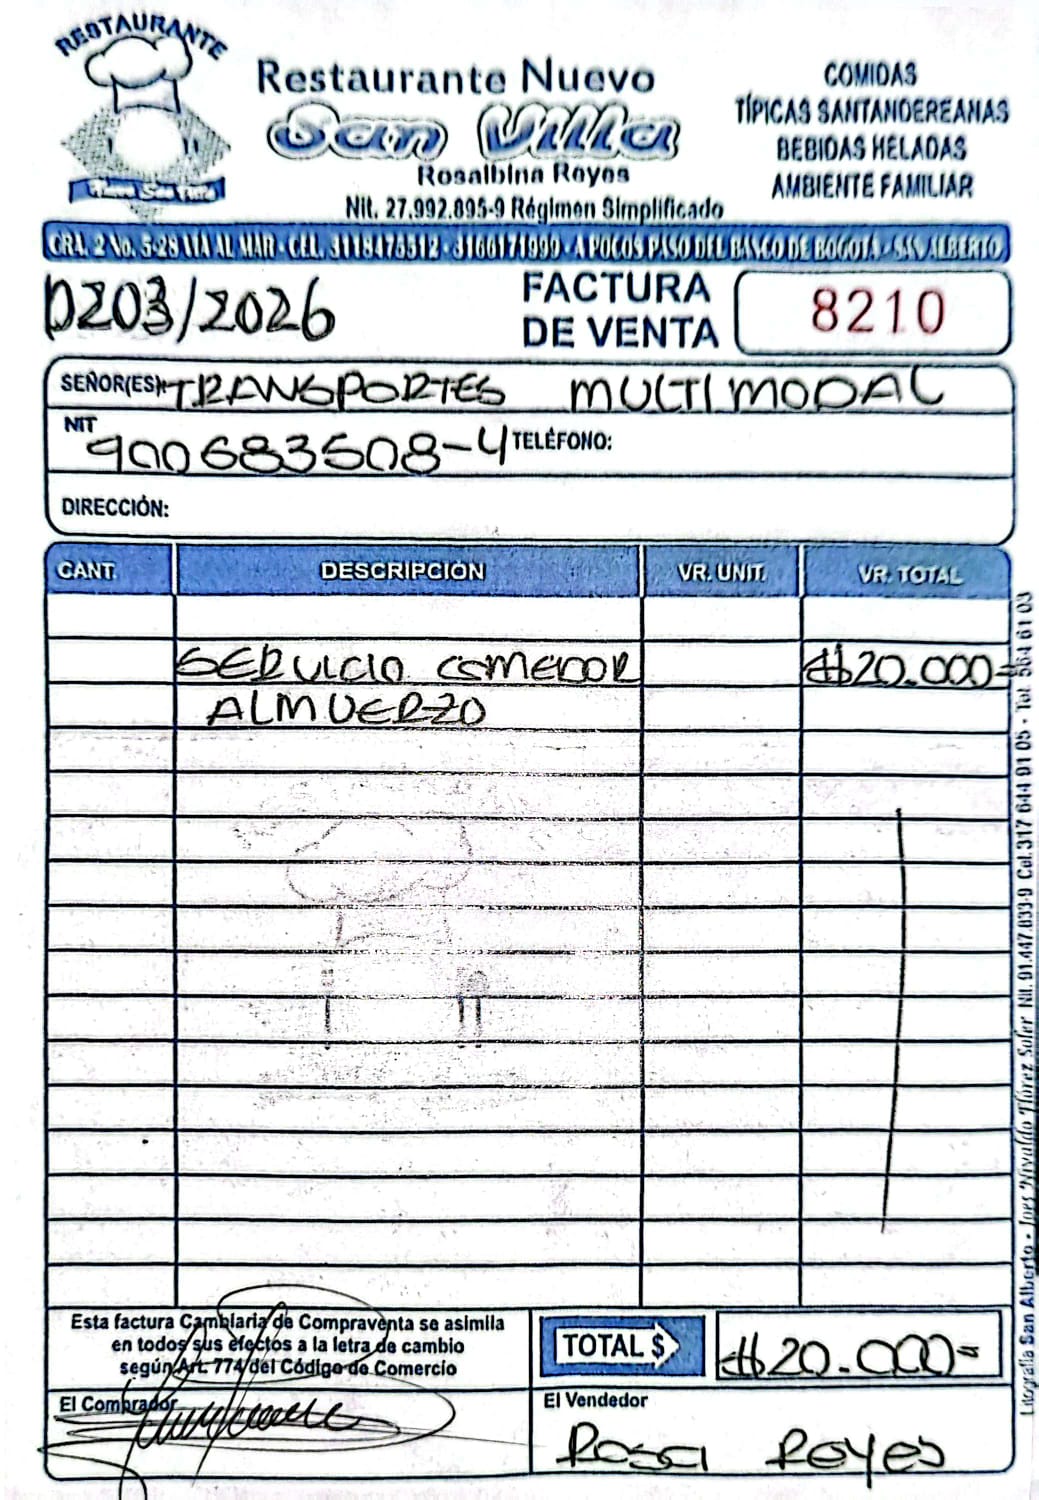 RESTAURANTE
Restaurante Nuevo
San Villa
Rosalbina Reyes
Nit. 27.992.895-9 Régimen Simplificado
COMIDAS
TÍPICAS SANTANDEREANAS
BEBIDAS HELADAS
AMBIENTE FAMILIAR
CRA. 2 No. 5-28 VIA AL MAR - CEL. 3118475512 - 3166171999 - A POCOS PASO DEL BANCO DE BOGOTA - SAN ALBERTO
0203/2026
FACTURA
DE VENTA
8210
SEÑOR(ES): TRANSPORTES MULTIMODAL
NIT 900683508-4 TELÉFONO:
DIRECCIÓN:
CANT. DESCRIPCIÓN VR. UNIT. VR. TOTAL
SERVICIO COMEDOR $20.000=
ALMUERZO
Esta factura Cambiaria de Compraventa se asimila
en todos sus efectos a la letra de cambio
según Art. 774 del Código de Comercio
TOTAL $ $20.000=
El Comprador
El Vendedor
Rosa Reyes
Litografía San Alberto - Nivaldo Flórez Soler Nit. 91.447.833-9 Cel. 317 644 91 05 - Tel. 564 61 03